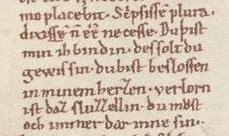 mo placebit. Scripsisse plura.
ñ ee necesse. Du bist
min ih bin din. des solt du
gewis sin. du bist beslossen
in minem herzen. verlorn
ist daz sluzzellin. du most
och immer dar inne sin.